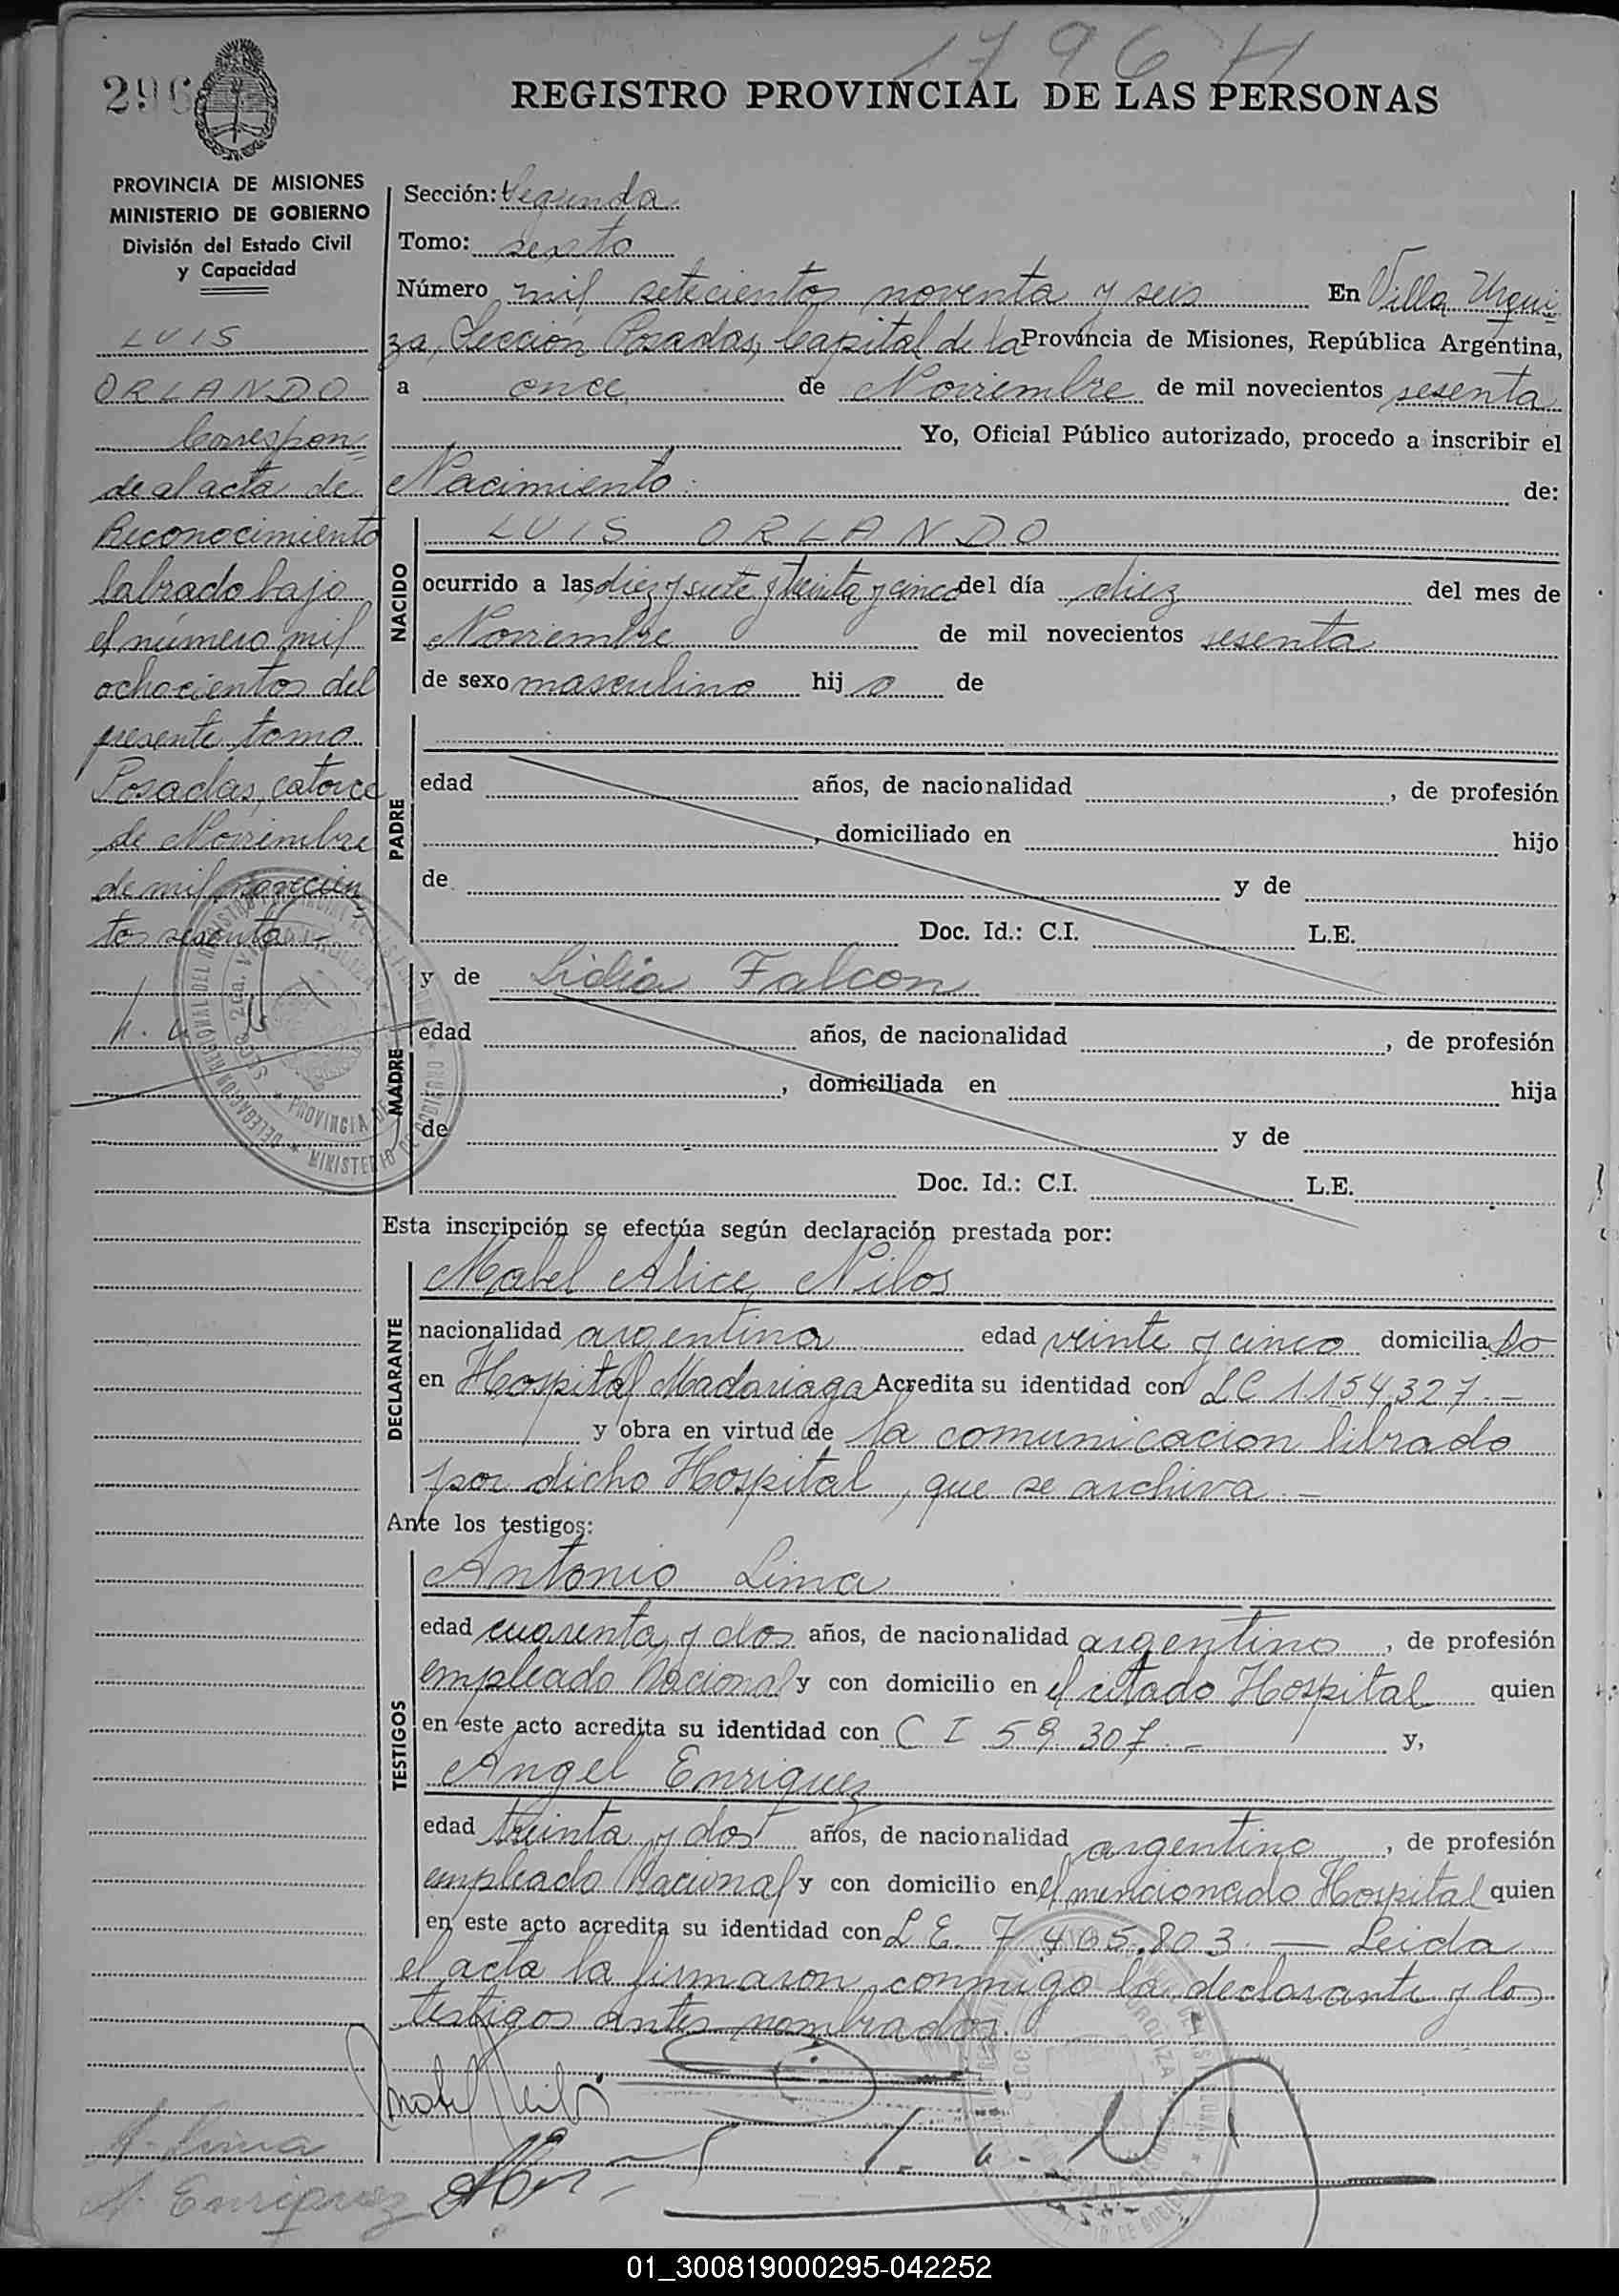 1796
296
REGISTRO PROVINCIAL DE LAS PERSONAS
PROVINCIA DE MISIONES
MINISTERIO DE GOBIERNO
División del Estado Civil
y Capacidad
LUIS
ORLANDO
Correspon=
de al acta de
Reconocimiento
labrado bajo
el número mil
ochocientos del
presente tomo
Posadas, catorce
de Noviembre
de mil novecien
tos sesenta.-
Sección: Segunda
Tomo: sexto
Número mil setecientos noventa y seis En Villa Urqui=
za, Sección Posadas, Capital de la Provincia de Misiones, República Argentina,
a once de Noviembre de mil novecientos sesenta
Yo, Oficial Público autorizado, procedo a inscribir el
Nacimiento de:
NACIDO
LUIS ORLANDO
ocurrido a las diez y siete y treinta y cinco del día diez del mes de
Noviembre de mil novecientos sesenta
de sexo masculino hijo de
PADRE
edad años, de nacionalidad , de profesión
, domiciliado en hijo
de y de
Doc. Id.: C.I. L.E.
MADRE
y de Lidia Falcon
edad años, de nacionalidad , de profesión
, domiciliada en hija
de y de
Doc. Id.: C.I. L.E.
Esta inscripción se efectúa según declaración prestada por:
DECLARANTE
Mabel Alice Nilos
nacionalidad argentina edad veinte y cinco domiciliado
en Hospital Madariaga Acredita su identidad con LC 1.154.327.-
y obra en virtud de la comunicacion librado
por dicho Hospital, que se archiva.-
Ante los testigos:
TESTIGOS
Antonio Lima
edad cuarenta y dos años, de nacionalidad argentino , de profesión
empleado Nacional y con domicilio en el citado Hospital quien
en este acto acredita su identidad con C I 59.307.- y,
Angel Enriquez
edad treinta y dos años, de nacionalidad argentino , de profesión
empleado Nacional y con domicilio en el mencionado Hospital quien
en este acto acredita su identidad con L E. 7.465.803.- Leida
el acta la firmaron conmigo la declarante y los
testigos antes nombrados.
A. Lima
A. Enriquez
01_300819000295-042252